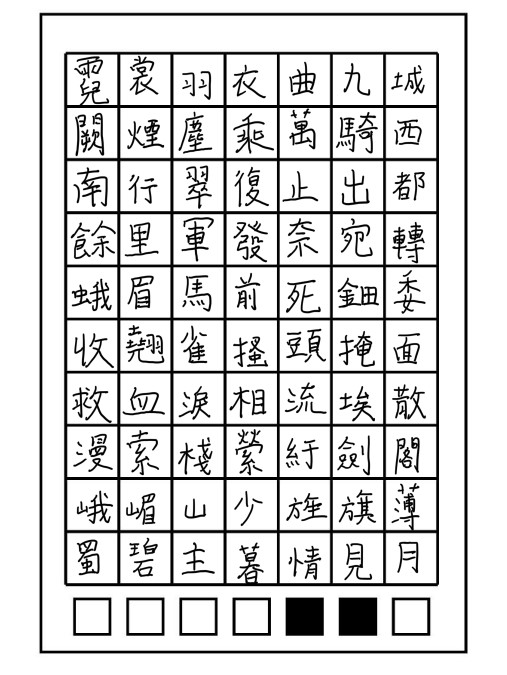 霓裳羽衣曲九城
闕煙塵乘萬騎西
南行翠復止出都
餘里軍發奈宛轉
蛾眉馬前死鈿委
收翹雀搔頭掩面
救血淚相流埃散
漫索棧縈紆劍閣
峨嵋山少旌旗薄
蜀碧主暮情見月